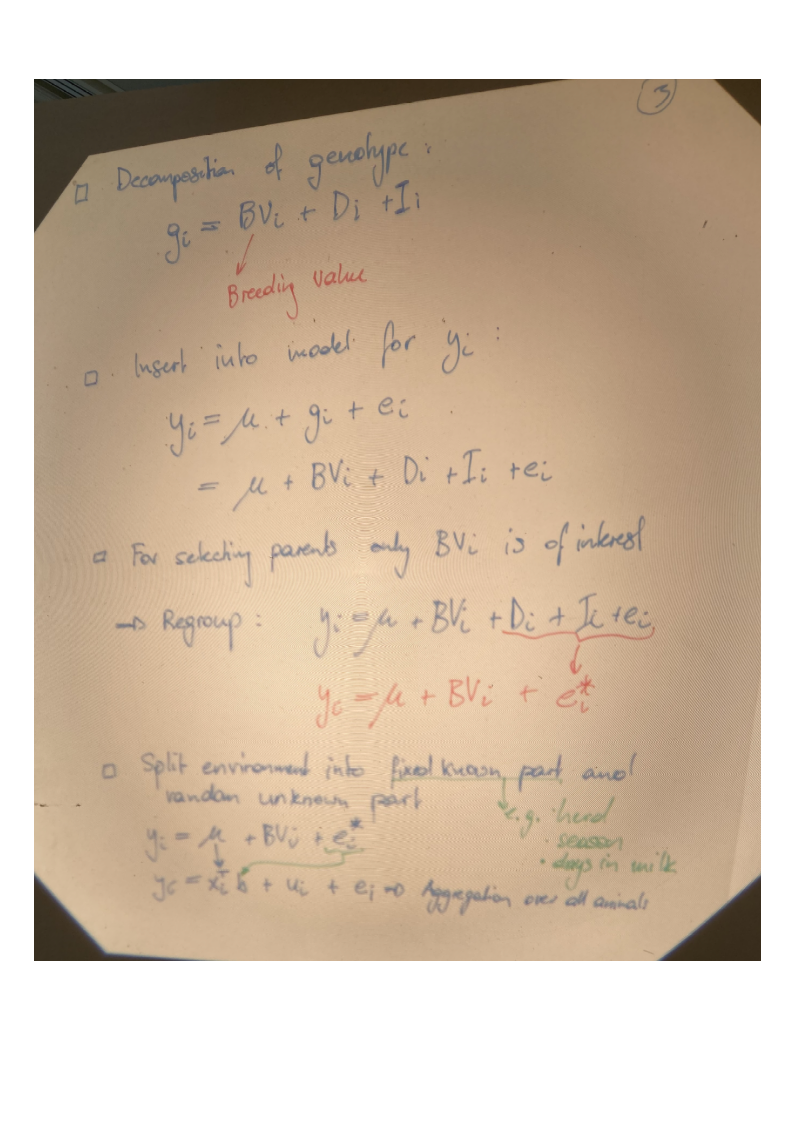 3
□ Decomposition of genotype :
gᵢ = BVᵢ + Dᵢ + Iᵢ
Breeding value
□ Insert into model for yᵢ :
yᵢ = μ + gᵢ + eᵢ
= μ + BVᵢ + Dᵢ + Iᵢ + eᵢ
□ For selecting parents only BVᵢ is of interest
→ Regroup : yᵢ = μ + BVᵢ + Dᵢ + Iᵢ + eᵢ
yᵢ = μ + BVᵢ + eᵢ*
□ Split environment into fixed known part and
random unknown part
e.g. · herd
yᵢ = μ + BVᵢ + eᵢ*
· season
· days in milk
yᵢ = xᵢᵀ b + uᵢ + eᵢ ⇒ Aggregation over all animals